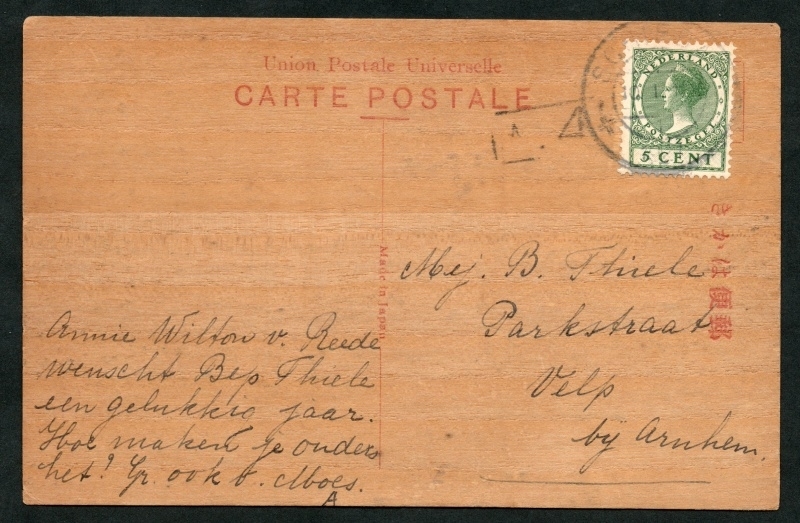 Union Postale Universelle
CARTE POSTALE
NEDERLAND
POSTZEGEL
5 CENT
きかは便郵
Made in Japan
Mej. B. Thiele
Parkstraat
Velp
bij Arnhem.
Annie Wilton v. Reede
wenscht Bep Thiele
een gelukkig jaar.
Hoe maken je ouders
het? Gr. ook v. Moes.
A